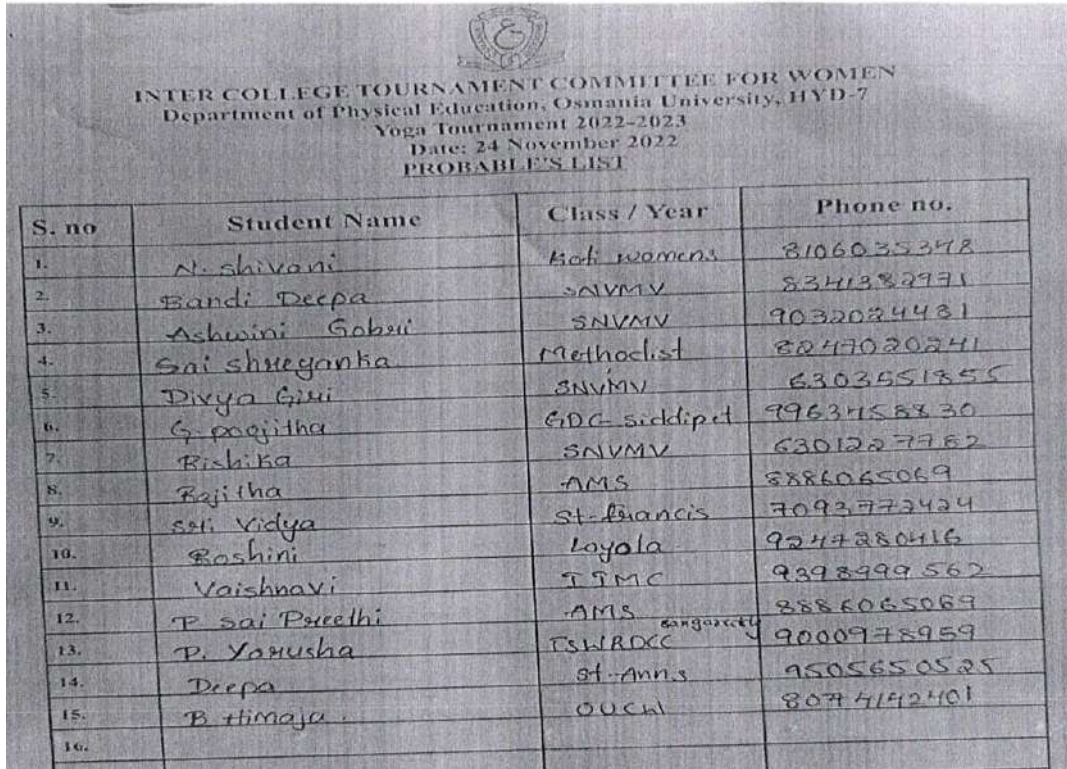 INTER COLLEGE TOURNAMENT COMMITTEE FOR WOMEN
Department of Physical Education, Osmania University, HYD-7
Yoga Tournament 2022-2023
Date: 24 November 2022
PROBABLE'S LIST
S. no Student Name Class / Year Phone no.
1. N. shivani Koti womens 8106035348
2. Bandi Deepa SNVMV 8341382971
3. Ashwini Gobri SNVMV 9032024481
4. Sai shreyanka Methodist 8247020241
5. Divya Giri SNVMV 6303551855
6. G. poojitha GDC-siddipet 9963458830
7. Rishika SNVMV 6301227782
8. Rajitha AMS 8886065069
9. Sri Vidya St-francis 7093772424
10. Roshini Loyola 9247280416
11. Vaishnavi TTMC 9398999562
12. P sai Preethi AMS 8886065069
13. P. Yarusha 9000978959
14. Deepa St-Ann.s 9505650525
15. B Himaja. 8074142401
16.